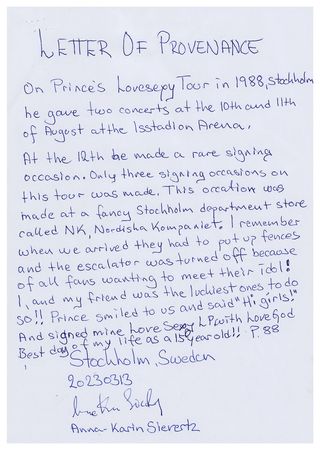 LETTER OF PROVENANCE
On Prince's Lovesexy Tour in 1988, Stockholm
he gave two concerts at the 10th and 11th
of August at the Isstadion Arena.
At the 12th he made a rare signing
occasion. Only three signing occasions on
this tour was made. This occation was
made at a fancy Stockholm department store
called NK, Nordiska Kompaniet. I remember
when we arrived they had to put up fences
and the escalator was turned off because
of all fans wanting to meet their idol!
I, and my friend was the luckiest ones to do
so!! Prince smiled to us and said "Hi girls!"
And signed mine Love Sexy LP, with Love God
Best day of my life as a 15 year old!! P. 88
Stockholm, Sweden
20230313
Anna-Karin Sievertz